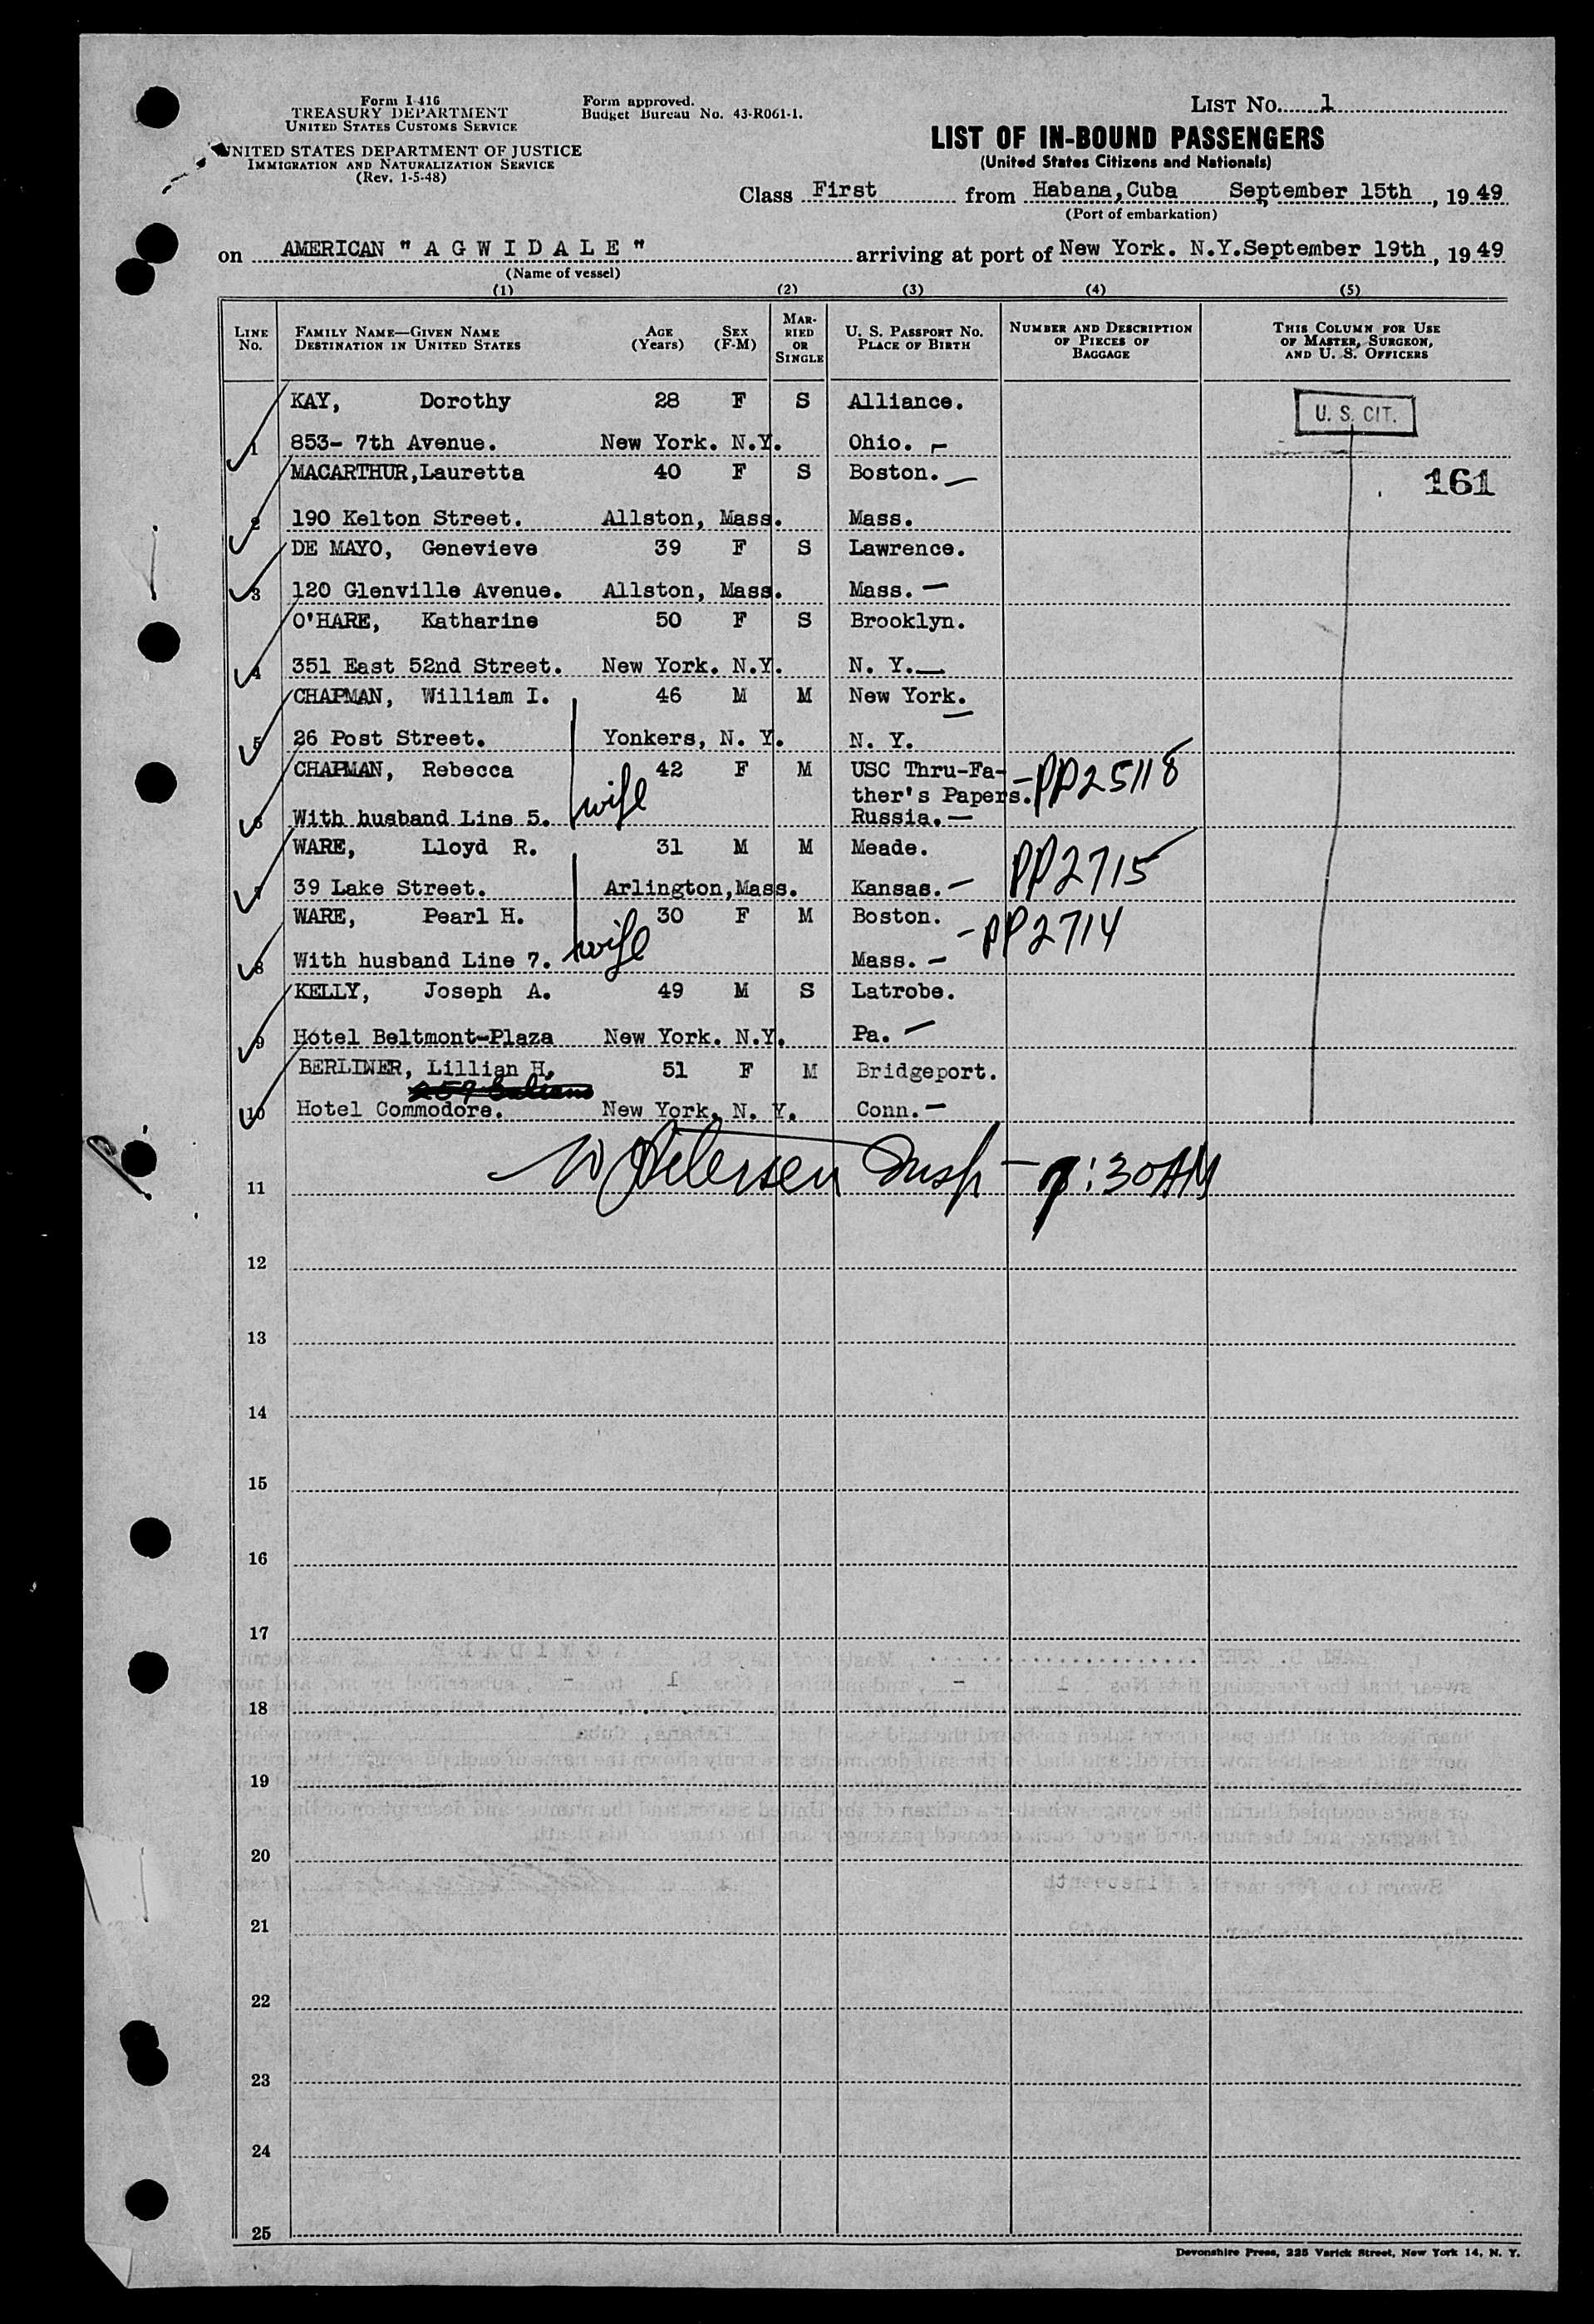 Form I-416
TREASURY DEPARTMENT
UNITED STATES CUSTOMS SERVICE
UNITED STATES DEPARTMENT OF JUSTICE
IMMIGRATION AND NATURALIZATION SERVICE
(Rev. 1-5-48)
Form approved.
Budget Bureau No. 43-R061-1.
LIST No. 1
LIST OF IN-BOUND PASSENGERS
(United States Citizens and Nationals)
Class First from Habana, Cuba September 15th, 1949
(Port of embarkation)
on AMERICAN "AGWIDALE" arriving at port of New York. N.Y. September 19th, 1949
(Name of vessel)
(1) (2) (3) (4) (5)
LINE No. FAMILY NAME—GIVEN NAME DESTINATION IN UNITED STATES AGE (Years) SEX (F-M) MARRIED OR SINGLE U. S. PASSPORT No. PLACE OF BIRTH NUMBER AND DESCRIPTION OF PIECES OF BAGGAGE THIS COLUMN FOR USE OF MASTER, SURGEON, AND U. S. OFFICERS
KAY, Dorothy 28 F S Alliance. U. S. CIT.
1 853- 7th Avenue. New York. N.Y. Ohio.
MACARTHUR, Lauretta 40 F S Boston. 161
2 190 Kelton Street. Allston, Mass. Mass.
DE MAYO, Genevieve 39 F S Lawrence.
3 120 Glenville Avenue. Allston, Mass. Mass.
O'HARE, Katharine 50 F S Brooklyn.
4 351 East 52nd Street. New York. N.Y. N. Y.
CHAPMAN, William I. 46 M M New York.
5 26 Post Street. Yonkers, N. Y. N. Y.
CHAPMAN, Rebecca 42 F M USC Thru-Fa-
wife ther's Papers. PP25118
6 With husband Line 5. Russia.
WARE, Lloyd R. 31 M M Meade.
7 39 Lake Street. Arlington, Mass. Kansas. PP2715
WARE, Pearl H. 30 F M Boston. PP2714
8 With husband Line 7. wife Mass.
KELLY, Joseph A. 49 M S Latrobe.
9 Hotel Beltmont-Plaza New York. N.Y. Pa.
BERLINER, Lillian H. 51 F M Bridgeport.
10 Hotel Commodore. New York. N. Y. Conn.
W Petersen Insp - 7:30AM
11
12
13
14
15
16
17
18
19
20
21
22
23
24
25
Devonshire Press, 225 Varick Street, New York 14, N. Y.